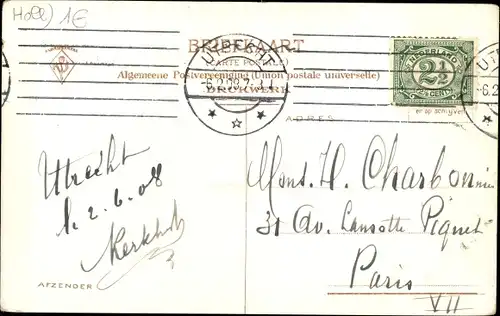 Holl) 1€
BRIEFKAART
(CARTE POSTALE)
Algemeene Postvereeniging (Union postale universelle)
DRUKWERK
NEDERLAND
2½
CENT
UTRECHT
6.2.08.7
UT
6.2
ADRES
er op schrijve
Utrecht
2.6.08
AFZENDER
Mons. H. Charbonnie
31 Av. Lamotte Piquet
Paris
VII